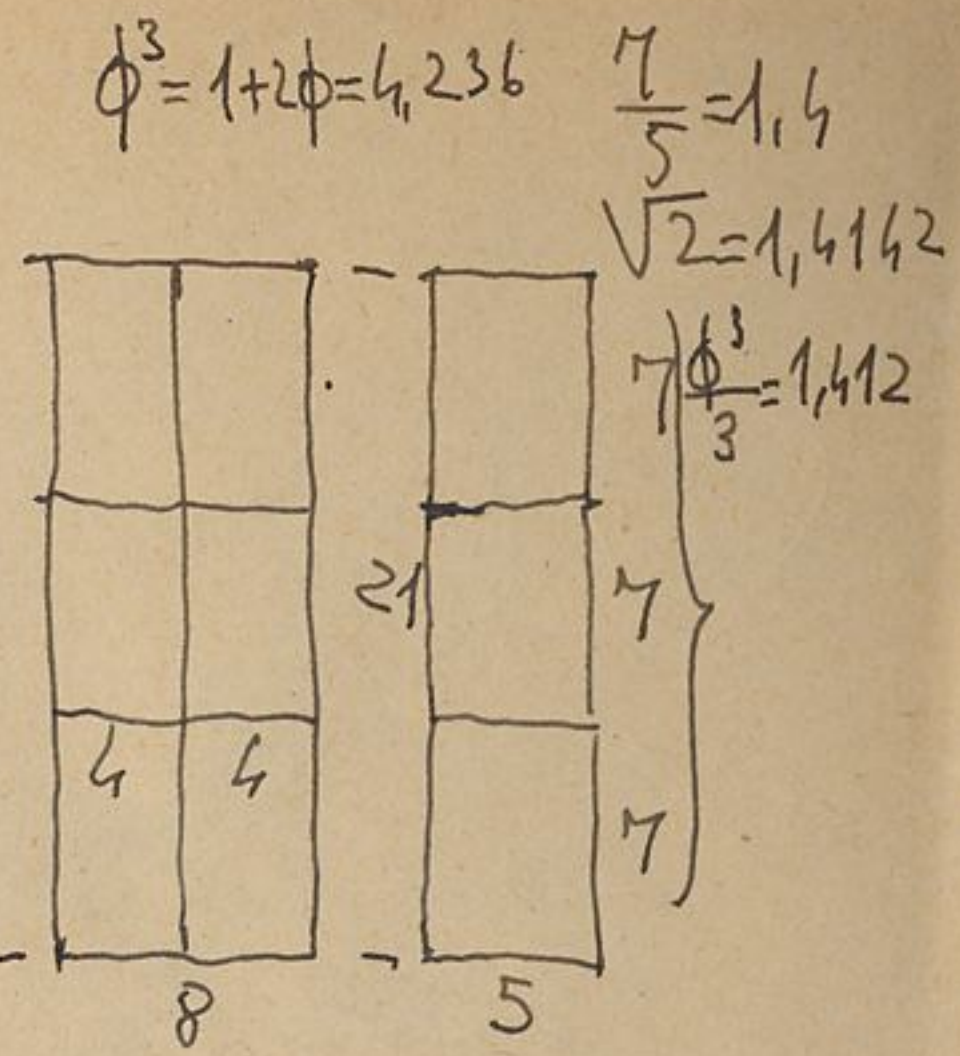 ϕ³=1+2ϕ=4,236
7/5=1,4
√2=1,4142
7
ϕ³/3=1,412
21
7
4 4
7
8
5